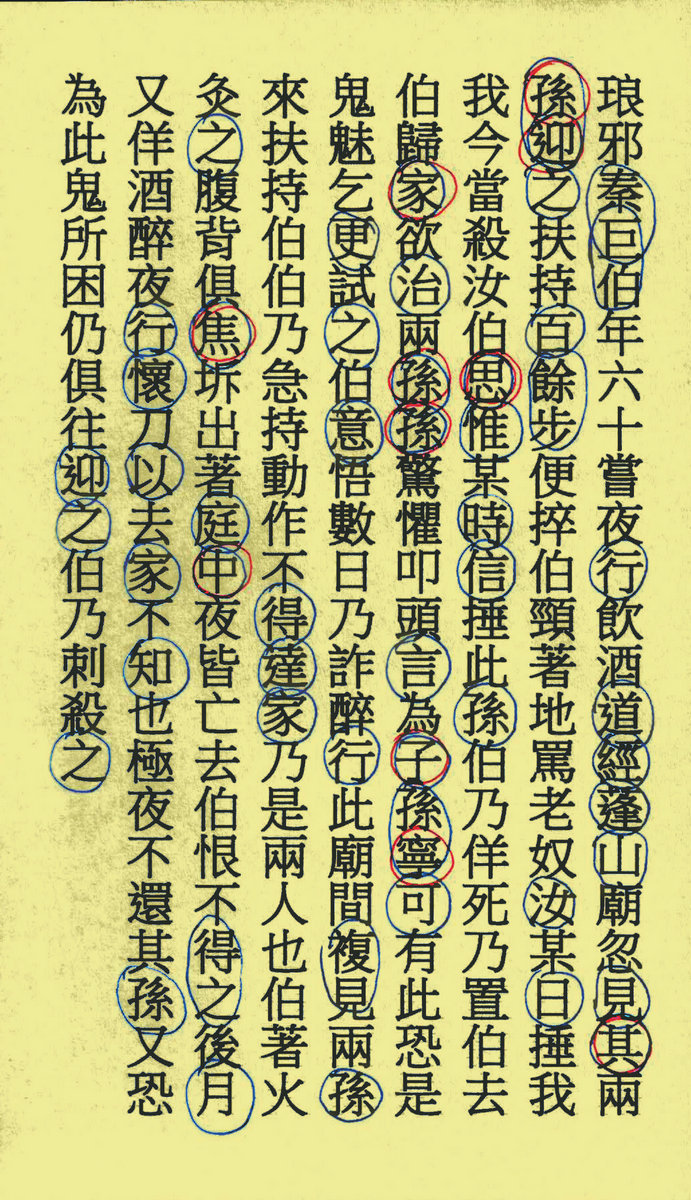 琅邪秦巨伯年六十嘗夜行飲酒道經蓬山廟忽見其兩
孫迎之扶持百餘步便捽伯頸著地罵老奴汝某日捶我
我今當殺汝伯思惟某時信捶此孫伯乃佯死乃置伯去
伯歸家欲治兩孫孫驚懼叩頭言為子孫寧可有此恐是
鬼魅乞更試之伯意悟數日乃詐醉行此廟間複見兩孫
來扶持伯伯乃急持動作不得達家乃是兩人也伯著火
灸之腹背俱焦坼出著庭中夜皆亡去伯恨不得之後月
又佯酒醉夜行懷刀以去家不知也極夜不還其孫又恐
為此鬼所困仍俱往迎之伯乃刺殺之